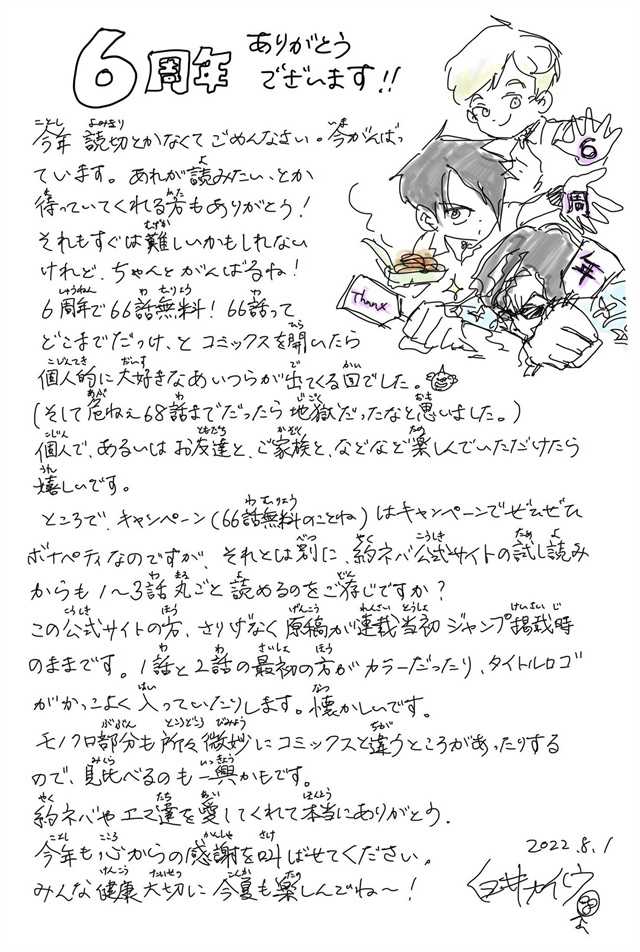 6周年 ありがとう
ございます!!
今年 読切とかなくてごめんなさい。今がんばっ
ています。あれが読みたい、とか
待っていてくれる方もありがとう!
それもすぐは難しいかもしれない
けれど、ちゃんとがんばるね!
6周年で66話無料! 66話って
どこまでだっけ、と コミックスを開いたら
個人的に大好きなあいつらが出てくる回でした。
(そして危ねぇ68話までだったら地獄だったなと思いました。)
個人で、あるいは お友達と、ご家族と、などなど楽しんでいただけたら
嬉しいです。
ところで、キャンペーン(66話無料のことね)はキャンペーンでぜひぜひ
ボナペティなのですが、それとは別に、約ネバ公式サイトの試し読み
からも1〜3話 丸ごと 読めるのをご存じですか?
この公式サイトの方、さりげなく 原稿が連載当初 ジャンプ掲載時
のままです。1話と2話の最初の方がカラーだったり、タイトルロゴ
がかっこよく入っていたりします。懐かしいです。
モノクロ部分も所々微妙にコミックスと違うところがあったりする
ので、見比べるのも一興かもです。
約ネバやエマ達を愛してくれて本当にありがとう。
今年も心からの感謝を叫ばせてください。
みんな健康大切に 今夏も楽しんでね〜!
2022.8.1
白井カイウ
6
周
年
Thanx